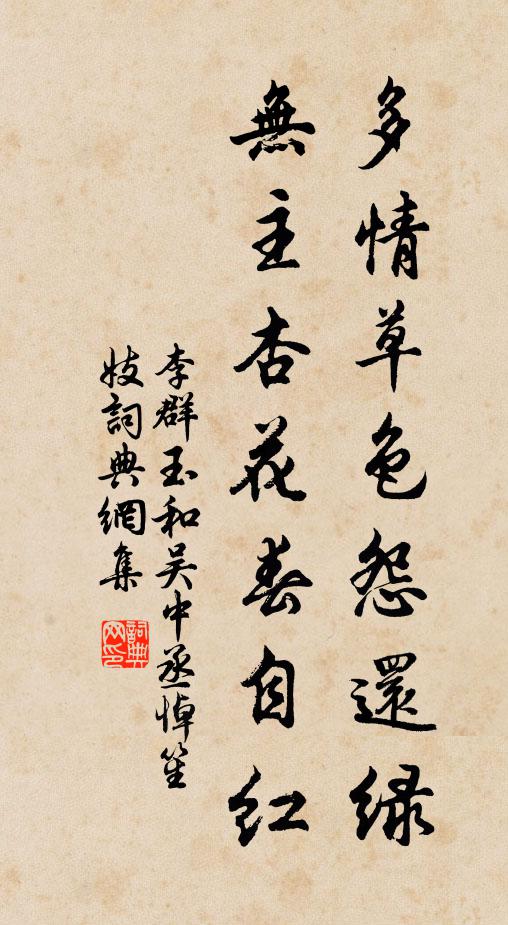 多情草色怨還緑
無主杏花春自紅
李群玉和吴中丞悼笙
妓詞典網集
詞典網印